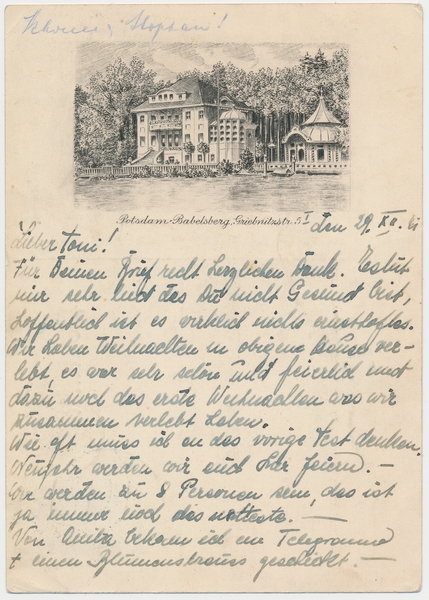 Potsdam-Babelsberg, Griebnitzstr. 5 I den 29. XII.
Lieber Toni!
Für Deinen Brief recht herzlichen Dank. Es tut
mir sehr leid das Du nicht Gesund bist,
hoffentlich ist es wirklich nichts ernsthaftes.
Wir haben Weihnachten in obigem Hause ver-
lebt, es war sehr schön und feierlich und
dazu noch das erste Weihnachten was wir
zusammen verlebt haben.
Wie oft muss ich an das vorige Fest denken.
Neujahr werden wir auch hier feiern. —
Wir werden zu 8 Personen sein, das ist
ja immer noch das netteste. —
Von bekam ich ein Telegramm
+ einen Blumenstrauss geschickt. —